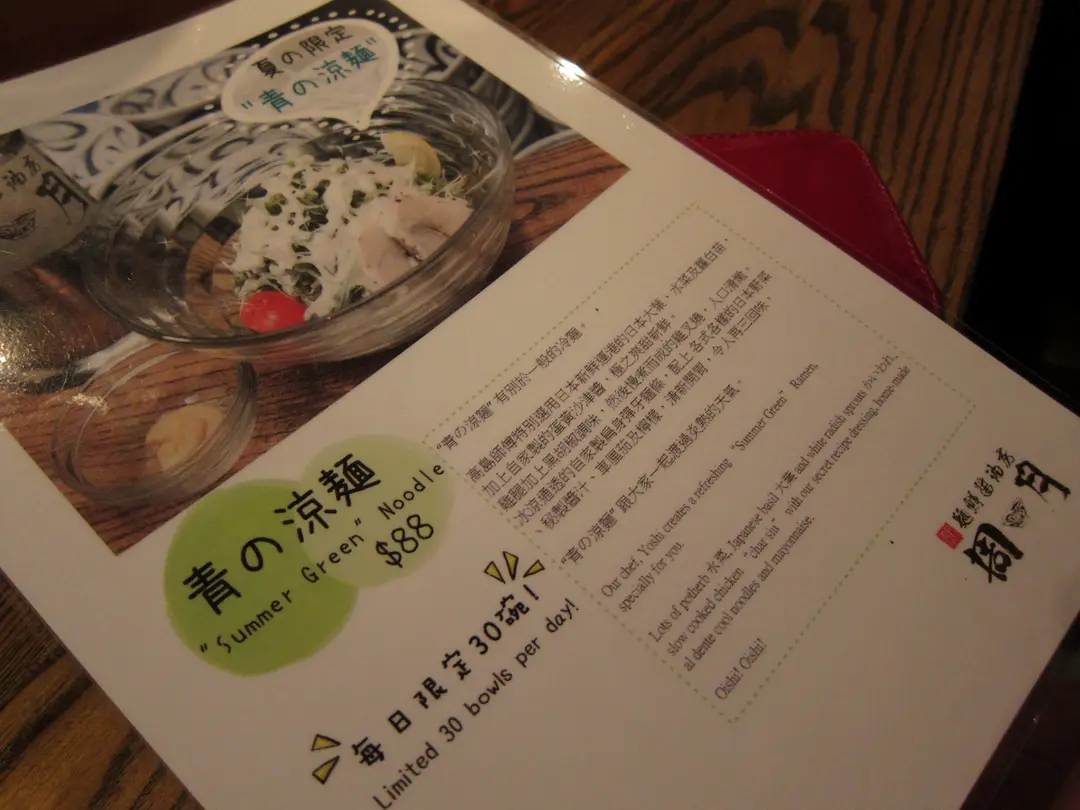 夏の限定
"青の涼麵"
青の涼麵
"Summer Green" Noodle
$88
每日限定30碗!
Limited 30 bowls per day!
"青の涼麵" 有別於一般的冷麵。
高島師傅特別選用日本新鮮運到的日本大葉、水菜及蘿白苗,
加上自家製的蛋黃沙律醬,極之爽甜新鮮。
雞腿加上黑胡椒調味,然後慢煮而成的雞叉燒,入口滑嫩。
冰涼通透的自家製扁身彈牙麵條,配上各式各樣的日本野菜
秘製醬汁、車厘茄及檸檬,清新開胃,令人再三回味。
"青の涼麵" 跟大家一起渡過炎熱的天氣。
Our chef, Yoshi creates a refreshing "Summer Green" Ramen,
specially for you.
Lots of potherb 水菜, Japanese basil 大葉 and white radish sprouts かいわれ,
slow cooked chicken "char siu" with our secret recipe dressing, home-made
al dente cool noodles and mayonnaise.
Oishi! Oishi!
月
周